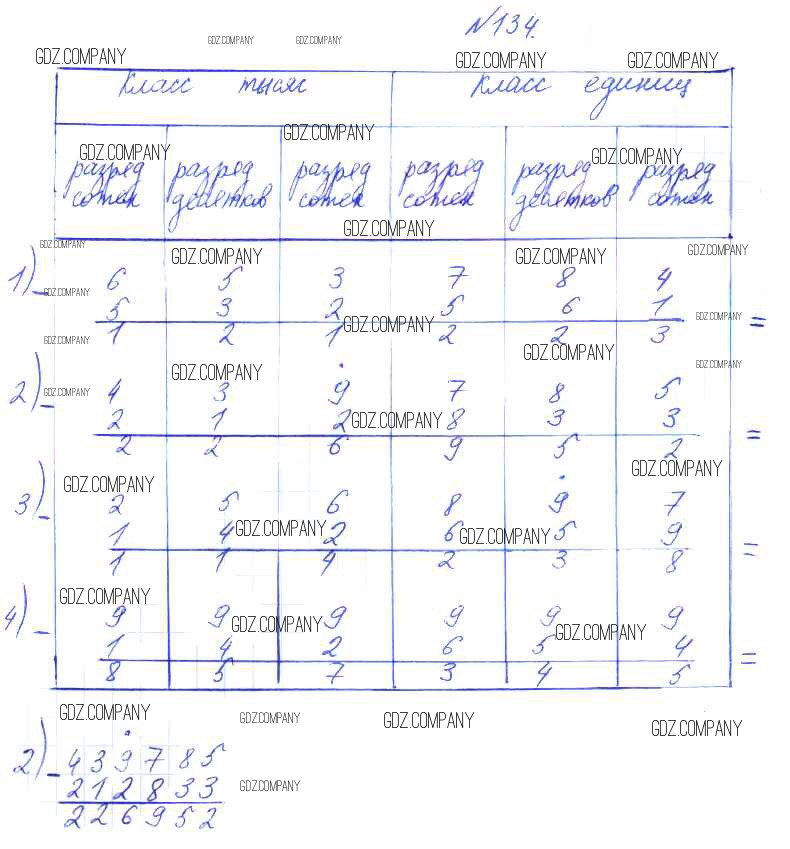 №134.
GDZ.COMPANY GDZ.COMPANY
GDZ.COMPANY GDZ.COMPANY GDZ.COMPANY
Класс тысяч Класс единиц
GDZ.COMPANY
GDZ.COMPANY GDZ.COMPANY
разряд разряд разряд разряд разряд разряд
сотен десятков сотен сотен десятков сотен
GDZ.COMPANY
GDZ.COMPANY GDZ.COMPANY GDZ.COMPANY GDZ.COMPANY
1) 6 5 3 7 8 4
GDZ.COMPANY
- 5 3 2 5 6 1 =
GDZ.COMPANY GDZ.COMPANY
1 2 1 2 2 3
GDZ.COMPANY GDZ.COMPANY
GDZ.COMPANY GDZ.COMPANY
2) 4 3 9 7 8 5
GDZ.COMPANY
- 2 1 2 8 3 3 =
GDZ.COMPANY
2 2 6 9 5 2
GDZ.COMPANY GDZ.COMPANY
3) 2 5 6 8 9 7
- 1 4 2 6 5 9 =
GDZ.COMPANY GDZ.COMPANY
1 1 4 2 3 8
GDZ.COMPANY
4) 9 9 9 9 9 9
GDZ.COMPANY GDZ.COMPANY
- 1 4 2 6 5 4 =
8 5 7 3 4 5
GDZ.COMPANY GDZ.COMPANY GDZ.COMPANY GDZ.COMPANY
2) 4 3 9 7 8 5
- 2 1 2 8 3 3
GDZ.COMPANY
2 2 6 9 5 2